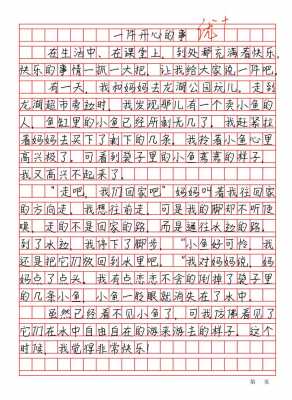 一件开心的事
优+
在生活中、在课堂上，到处都充满着快乐，
快乐的事情一抓一大把，让我给大家说一件吧。
有一天，我和妈妈去龙湖公园玩儿。走到
龙湖超市旁边时，我发现那儿有一个卖小鱼的
人，鱼缸里的小鱼已经所剩无几了，我赶紧拉
着妈妈去买下了剩下的几条。我拎着小鱼心里
高兴极了，可看到袋子里的小鱼蔫蔫的样子，
我又高兴不起来了。
“走吧，我们回家吧”妈妈叫着我往回家
的方向走，我想往前走，可是我的脚却不听使
唤，走的不是回家的路，而是通往水边的路，
到了水边，我停下了脚步，“小鱼好可怜，我
还是把它们放回到水里吧。”我对妈妈说，妈
妈点了点头，我有点恋恋不舍的倒掉了袋子里
的几条小鱼，小鱼一眨眼就消失在了水中。
虽然已经看不见小鱼了，可我仿佛看见了
它们在水中自由自在的游来游去的样子，这个
时候，我觉得非常快乐！
第 页